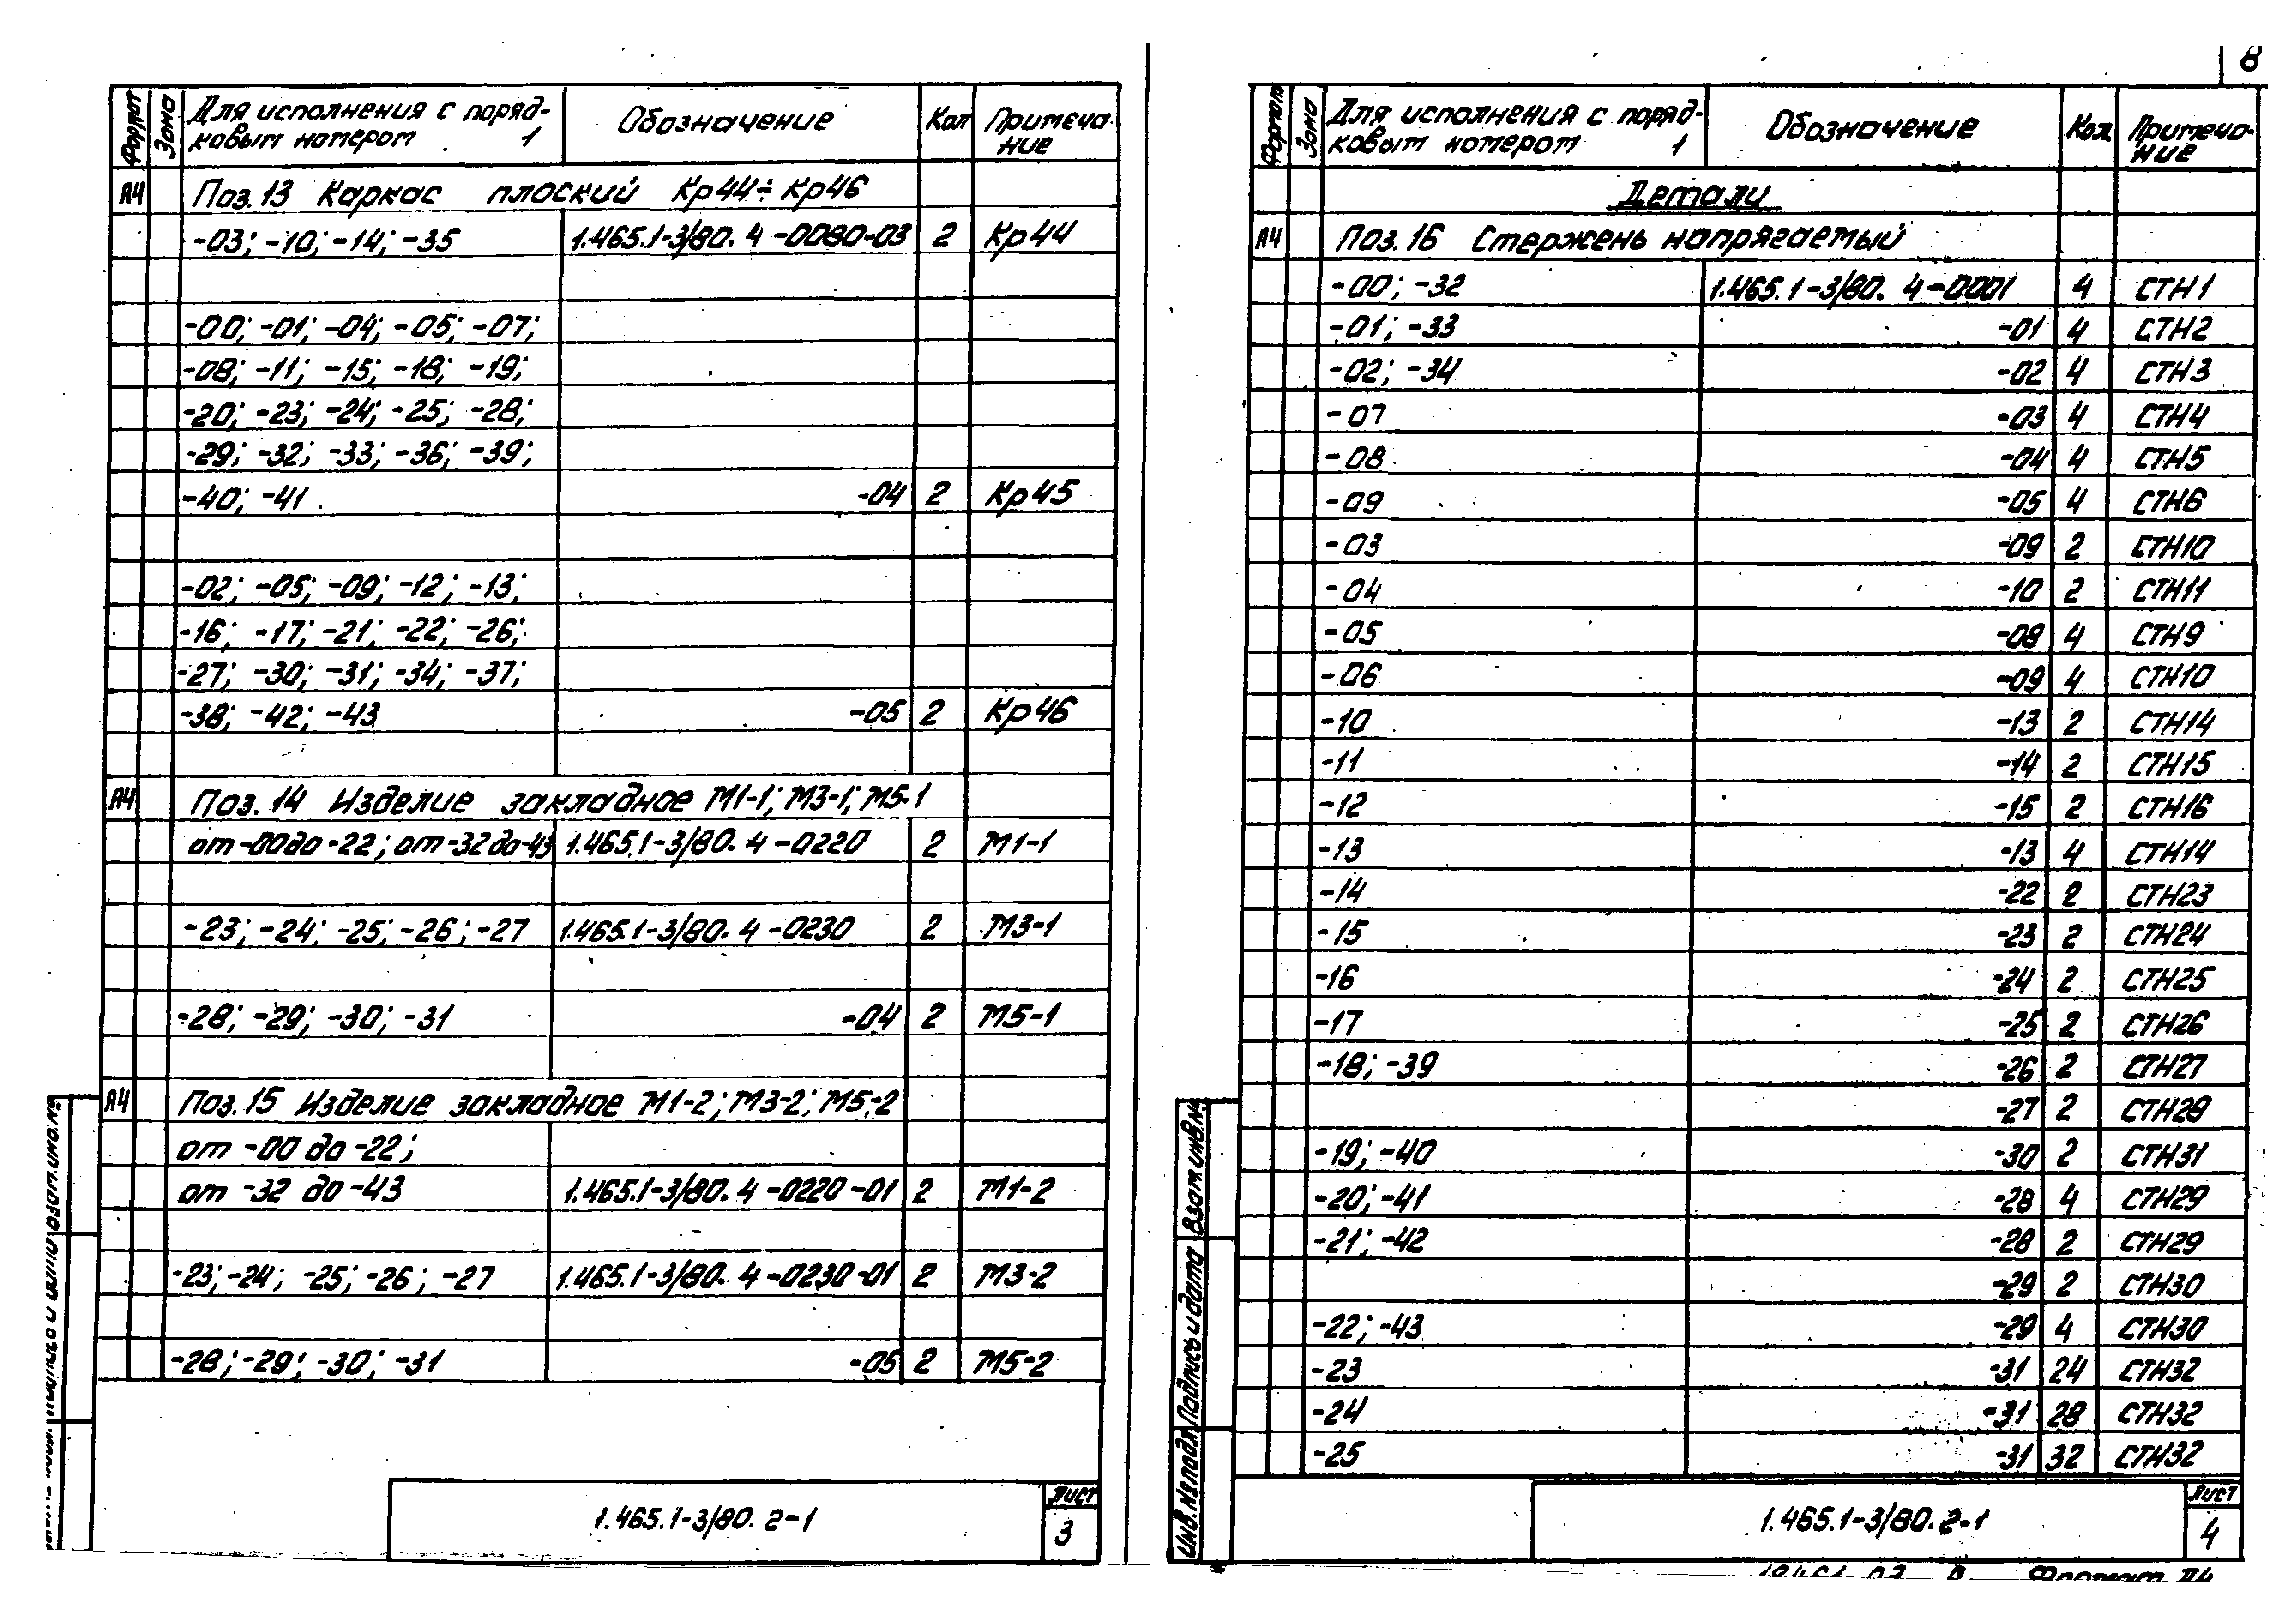 8
Формат Зона Для исполнения с поряд- Обозначение Кол Примеча-
ковым номером 1 ние
А4 Поз.13 Каркас плоский Кр44÷Кр46
-03; -10; -14; -35 1.465.1-3/80. 4-0080-03 2 Кр44
-00; -01; -04; -05; -07;
-08; -11; -15; -18; -19;
-20; -23; -24; -25; -28;
-29; -32; -33; -36; -39;
-40; -41 -04 2 Кр45
-02; -05; -09; -12; -13;
-16; -17; -21; -22; -26;
-27; -30; -31; -34; -37;
-38; -42; -43 -05 2 Кр46
А4 Поз. 14 Изделие закладное М1-1; М3-1; М5-1
от -00 до -22; от -32 до -43 1.465.1-3/80. 4-0220 2 М1-1
-23; -24; -25; -26; -27 1.465.1-3/80. 4-0230 2 М3-1
-28; -29; -30; -31 -04 2 М5-1
А4 Поз.15 Изделие закладное М1-2; М3-2; М5-2
от -00 до -22;
от -32 до -43 1.465.1-3/80. 4-0220-01 2 М1-2
-23; -24; -25; -26; -27 1.465.1-3/80. 4-0230-01 2 М3-2
-28; -29; -30; -31 -05 2 М5-2
1.465.1-3/80. 2-1
Лист
3
Формат Зона Для исполнения с поряд- Обозначение Кол. Примеча-
ковым номером 1 ние
Детали
А4 Поз.16 Стержень напрягаемый
-00; -32 1.465.1-3/80. 4-0001 4 СТН1
-01; -33 -01 4 СТН2
-02; -34 -02 4 СТН3
-07 -03 4 СТН4
-08 -04 4 СТН5
-09 -05 4 СТН6
-03 -09 2 СТН10
-04 -10 2 СТН11
-05 -08 4 СТН9
-06 -09 4 СТН10
-10 -13 2 СТН14
-11 -14 2 СТН15
-12 -15 2 СТН16
-13 -13 4 СТН14
-14 -22 2 СТН23
-15 -23 2 СТН24
-16 -24 2 СТН25
-17 -25 2 СТН26
-18; -39 -26 2 СТН27
-27 2 СТН28
-19; -40 -30 2 СТН31
-20; -41 -28 4 СТН29
-21; -42 -28 2 СТН29
-29 2 СТН30
-22; -43 -29 4 СТН30
-23 -31 24 СТН32
-24 -31 28 СТН32
-25 -31 32 СТН32
Инв.№подл. Подпись и дата Взам.инв.№
1.465.1-3/80. 2-1
Лист
4
Формат А4